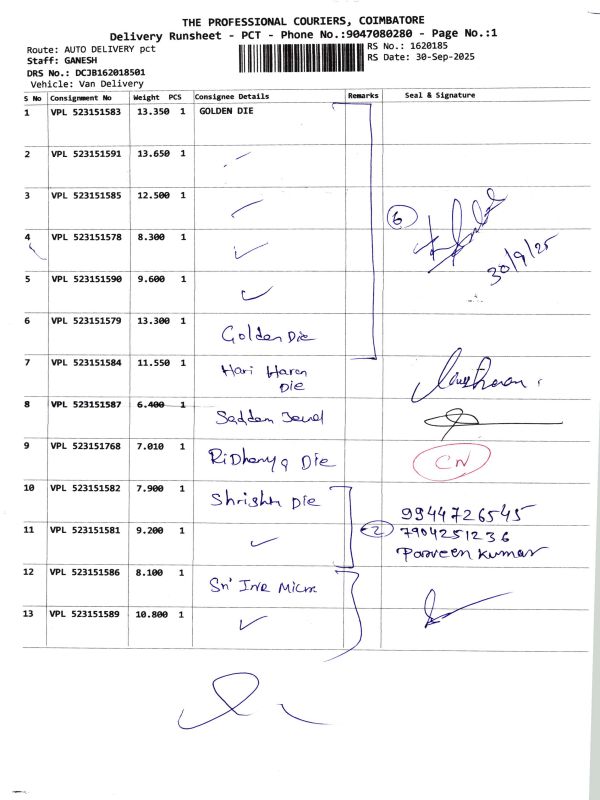 THE PROFESSIONAL COURIERS, COIMBATORE
Delivery Runsheet - PCT - Phone No.:9047080280 - Page No.:1
Route: AUTO DELIVERY pct
RS No.: 1620185
Staff: GANESH
RS Date: 30-Sep-2025
DRS No.: DCJB162018501
Vehicle: Van Delivery
S No Consignment No Weight PCS Consignee Details Remarks Seal & Signature
1 VPL 523151583 13.350 1 GOLDEN DIE
2 VPL 523151591 13.650 1
3 VPL 523151585 12.500 1
6
4 VPL 523151578 8.300 1
30/9/25
5 VPL 523151590 9.600 1
6 VPL 523151579 13.300 1
Golden Die
7 VPL 523151584 11.550 1 Hari Haren
Die
8 VPL 523151587 6.400 1
Saddam
9 VPL 523151768 7.010 1
Ridhanya Die
CN
10 VPL 523151582 7.900 1
Shrishti Die
9944726545
11 VPL 523151581 9.200 1 2 7904251236
Parveen Kumar
12 VPL 523151586 8.100 1
Sri
13 VPL 523151589 10.800 1